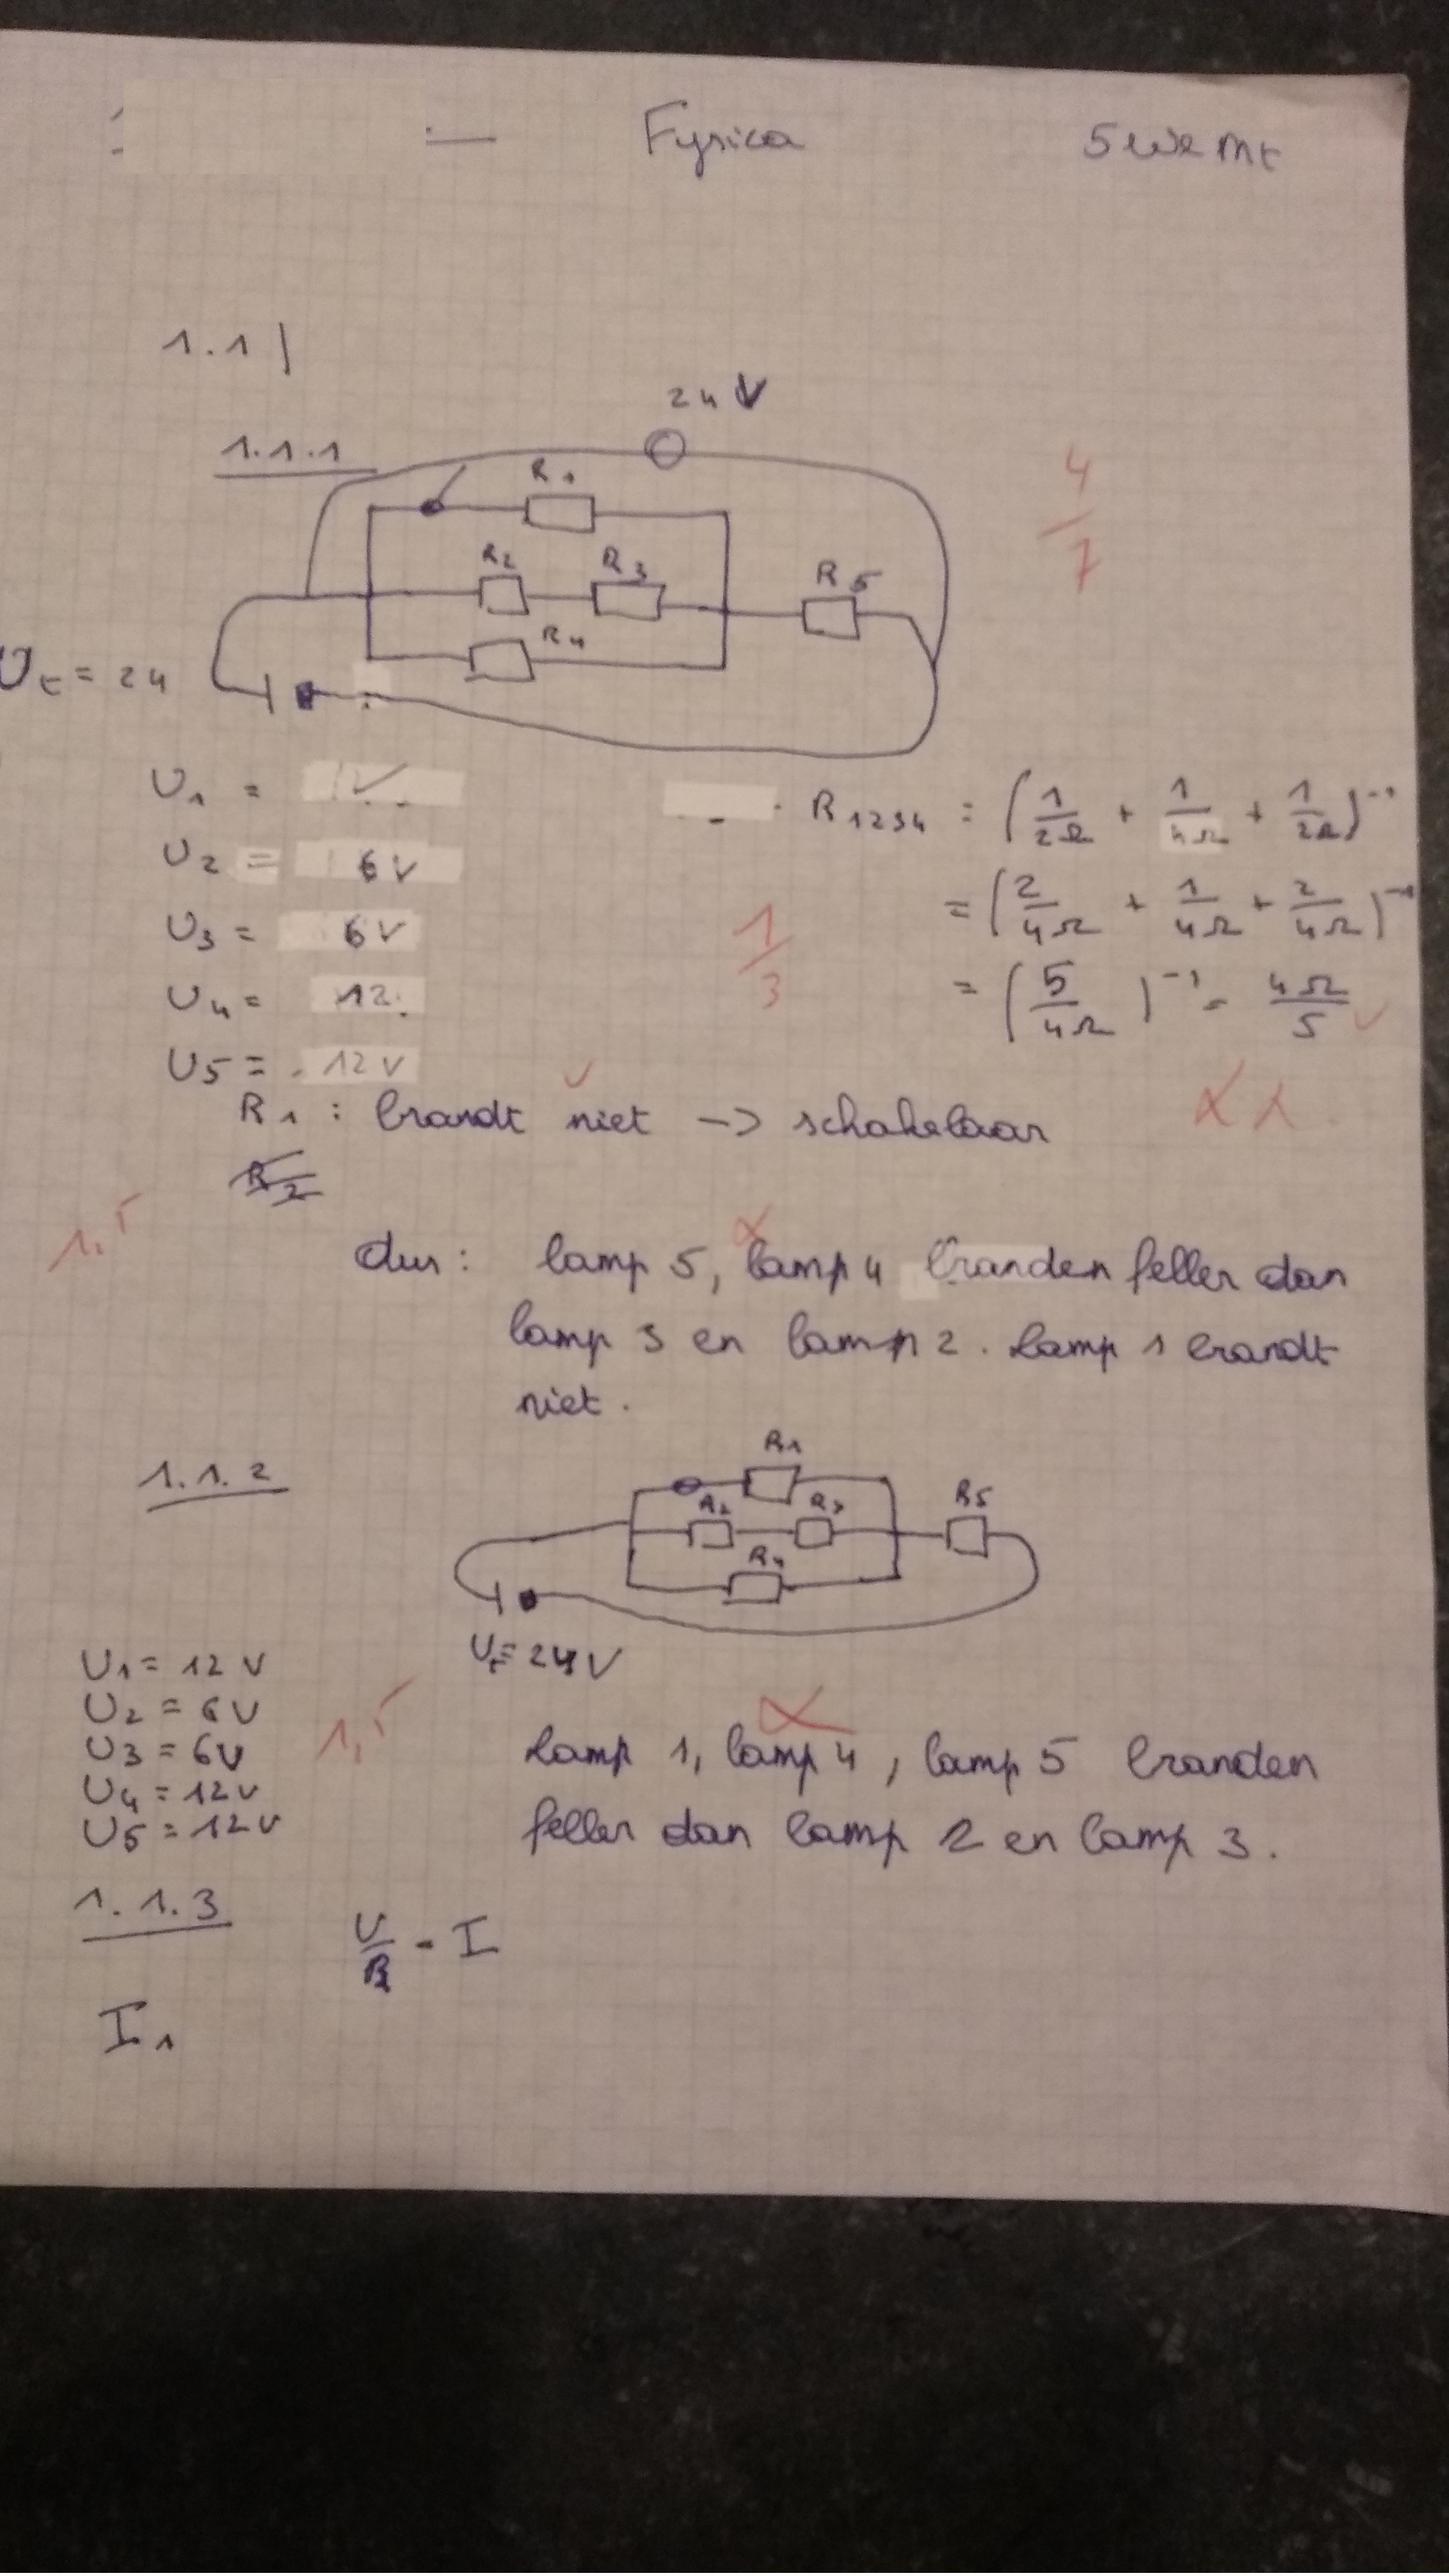 Fysica 5WeMt
1.1)
24 V
1.1.1
R1
R2 R3
R5
R4
4/7
Ut = 24
U1 =
U2 = 6V
U3 = 6V
U4 = 12
U5 = 12V
R1234 = (1/2Ω + 1/4Ω + 1/2Ω)⁻¹
= (2/4Ω + 1/4Ω + 2/4Ω)⁻¹
= (5/4Ω)⁻¹ = 4Ω/5
1/3
R1 : brandt niet -> schakelaar
R2
1,5
dus : lamp 5, lamp 4 branden feller dan
lamp 3 en lamp 2. Lamp 1 brandt
niet.
1.1.2
R1
R2 R3
R5
R4
Ut = 24V
U1 = 12V
U2 = 6V
U3 = 6V
U4 = 12V
U5 = 12V
1,5
Lamp 1, lamp 4, lamp 5 branden
feller dan lamp 2 en lamp 3.
1.1.3
U/R = I
I1